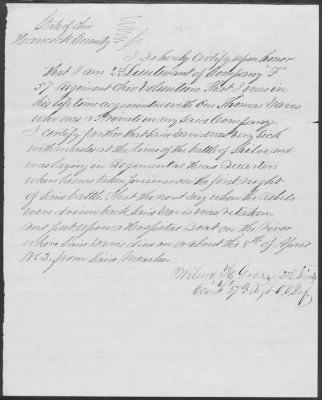 State of Ohio
Hancock County
I do hereby certify upon honor
that I am 2nd Lieutenant of Company "F"
57 Regiment Ohio Volunteers That I was in
his life time acquainted with One Thomas Davis
who was a Private in my said Company
I certify further that said Davis was very sick
with measles at the time of the battle of Shiloh and
was laying in Regimental Head Quarters
when he was taken prisoner on the first night
of said battle. That the next day when the rebels
were driven back said Davis was retaken
and put upon a Hospital Boat on the River
where said Davis died on or about the 8th of April
1862 from said Measles
2nd Lieut
Co "F" 57th Regt O.V. Inf